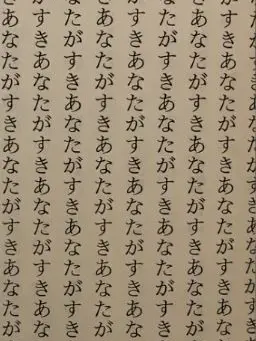 たがすきあなたがすきあなたがすき
すきあなたがすきあなたがすきあな
あなたがすきあなたがすきあなたが
たがすきあなたがすきあなたがすき
すきあなたがすきあなたがすきあな
あなたがすきあなたがすきあなたが
たがすきあなたがすきあなたがすき
すきあなたがすきあなたがすきあな
あなたがすきあなたがすきあなたが